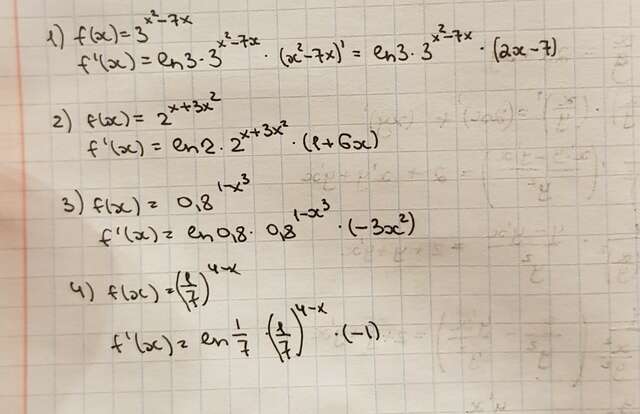 1) f(x) = 3^(x²-7x)
f'(x) = ln3 · 3^(x²-7x) · (x²-7x)' = ln3 · 3^(x²-7x) · (2x-7)
2) f(x) = 2^(x+3x²)
f'(x) = ln2 · 2^(x+3x²) · (1+6x)
3) f(x) = 0,8^(1-x³)
f'(x) = ln0,8 · 0,8^(1-x³) · (-3x²)
4) f(x) = (1/7)^(4-x)
f'(x) = ln 1/7 · (1/7)^(4-x) · (-1)